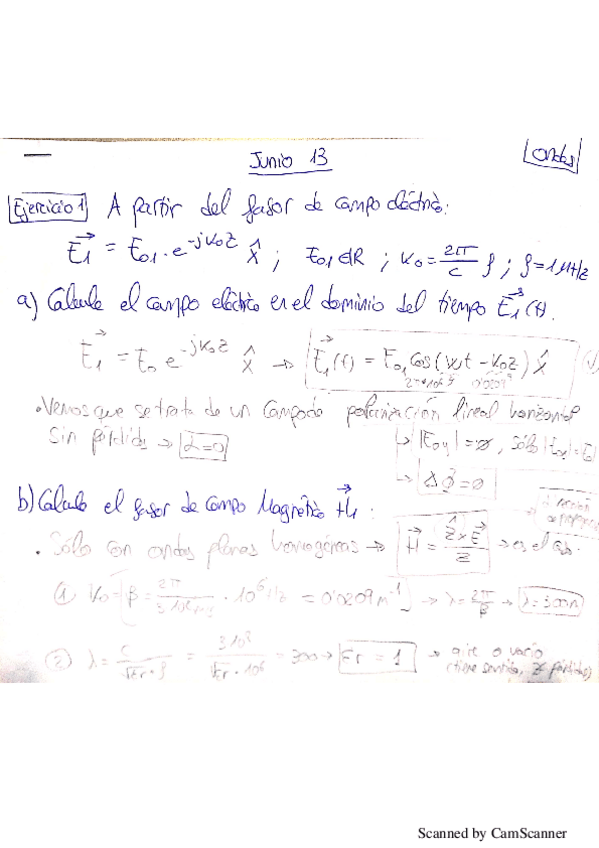 Junio 13
Ondas
Ejercicio 1 A partir del fasor de campo eléctrico.
E₁ = E₀₁ · e^-jK₀z x̂ ; E₀₁ ∈ ℝ ; K₀ = 2π/c f ; f = 1 MHz
a) Calcule el campo eléctrico en el dominio del tiempo E₁(t).
E₁ = E₀ e^-jK₀z x̂ → E₁(t) = E₀₁ cos(wt - K₀z) x̂
• Vemos que se trata de un campo de polarización lineal horizontal
Sin pérdidas → α=0
↳ |E₀y| = ø, sólo
→ Δφ = ø
b) Calcule el fasor de campo Magnético H₁.
• Sólo con ondas planas homogéneas → H = ẑ × E / Z → es el
① K₀ = β = 2π/ · 10⁶ Hz = 0'0209 m⁻¹ → λ = 2π/β → λ = 300m
② λ = c/√εr · f = 3·10⁸/√εr · 10⁶ = 300 → εr = 1 → aire o vacío
(tiene sentido, pérdidas)
Scanned by CamScanner